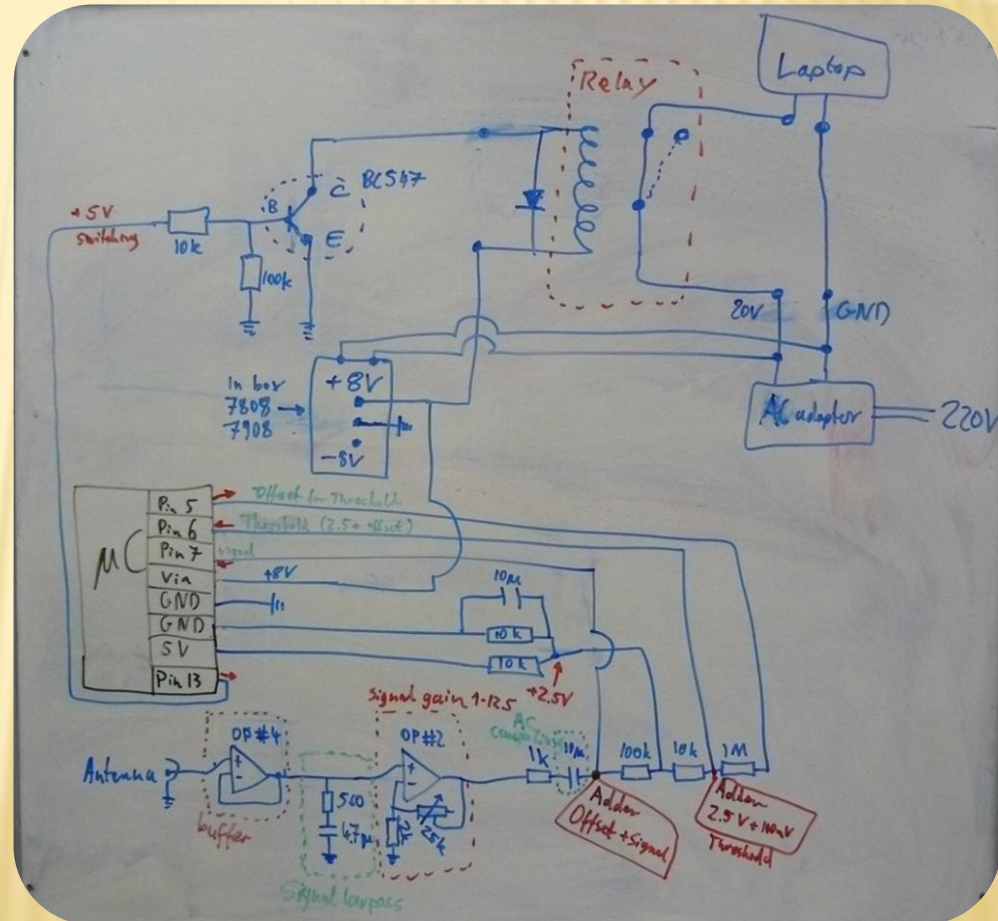 Laptop
Relay
BC547
C
B
E
+5V
switching
10k
100k
20V
GND
In box
7808
7908
+8V
-8V
AC adapter
220V
μC
Pin 5
Pin 6
Pin 7
Vin
GND
GND
5V
Pin 13
Offset for Threshold
Threshold (2.5 + offset)
signal
+8V
10μ
10k
10k
+2.5V
signal gain 1-12.5
AC
OP#4
OP#2
Antenna
+
-
+
-
buffer
560
47μ
2k
25k
1k
10μ
100k
10k
1M
Signal lowpass
Adder
Offset + Signal
Adder
2.5V + 100mV
Threshold